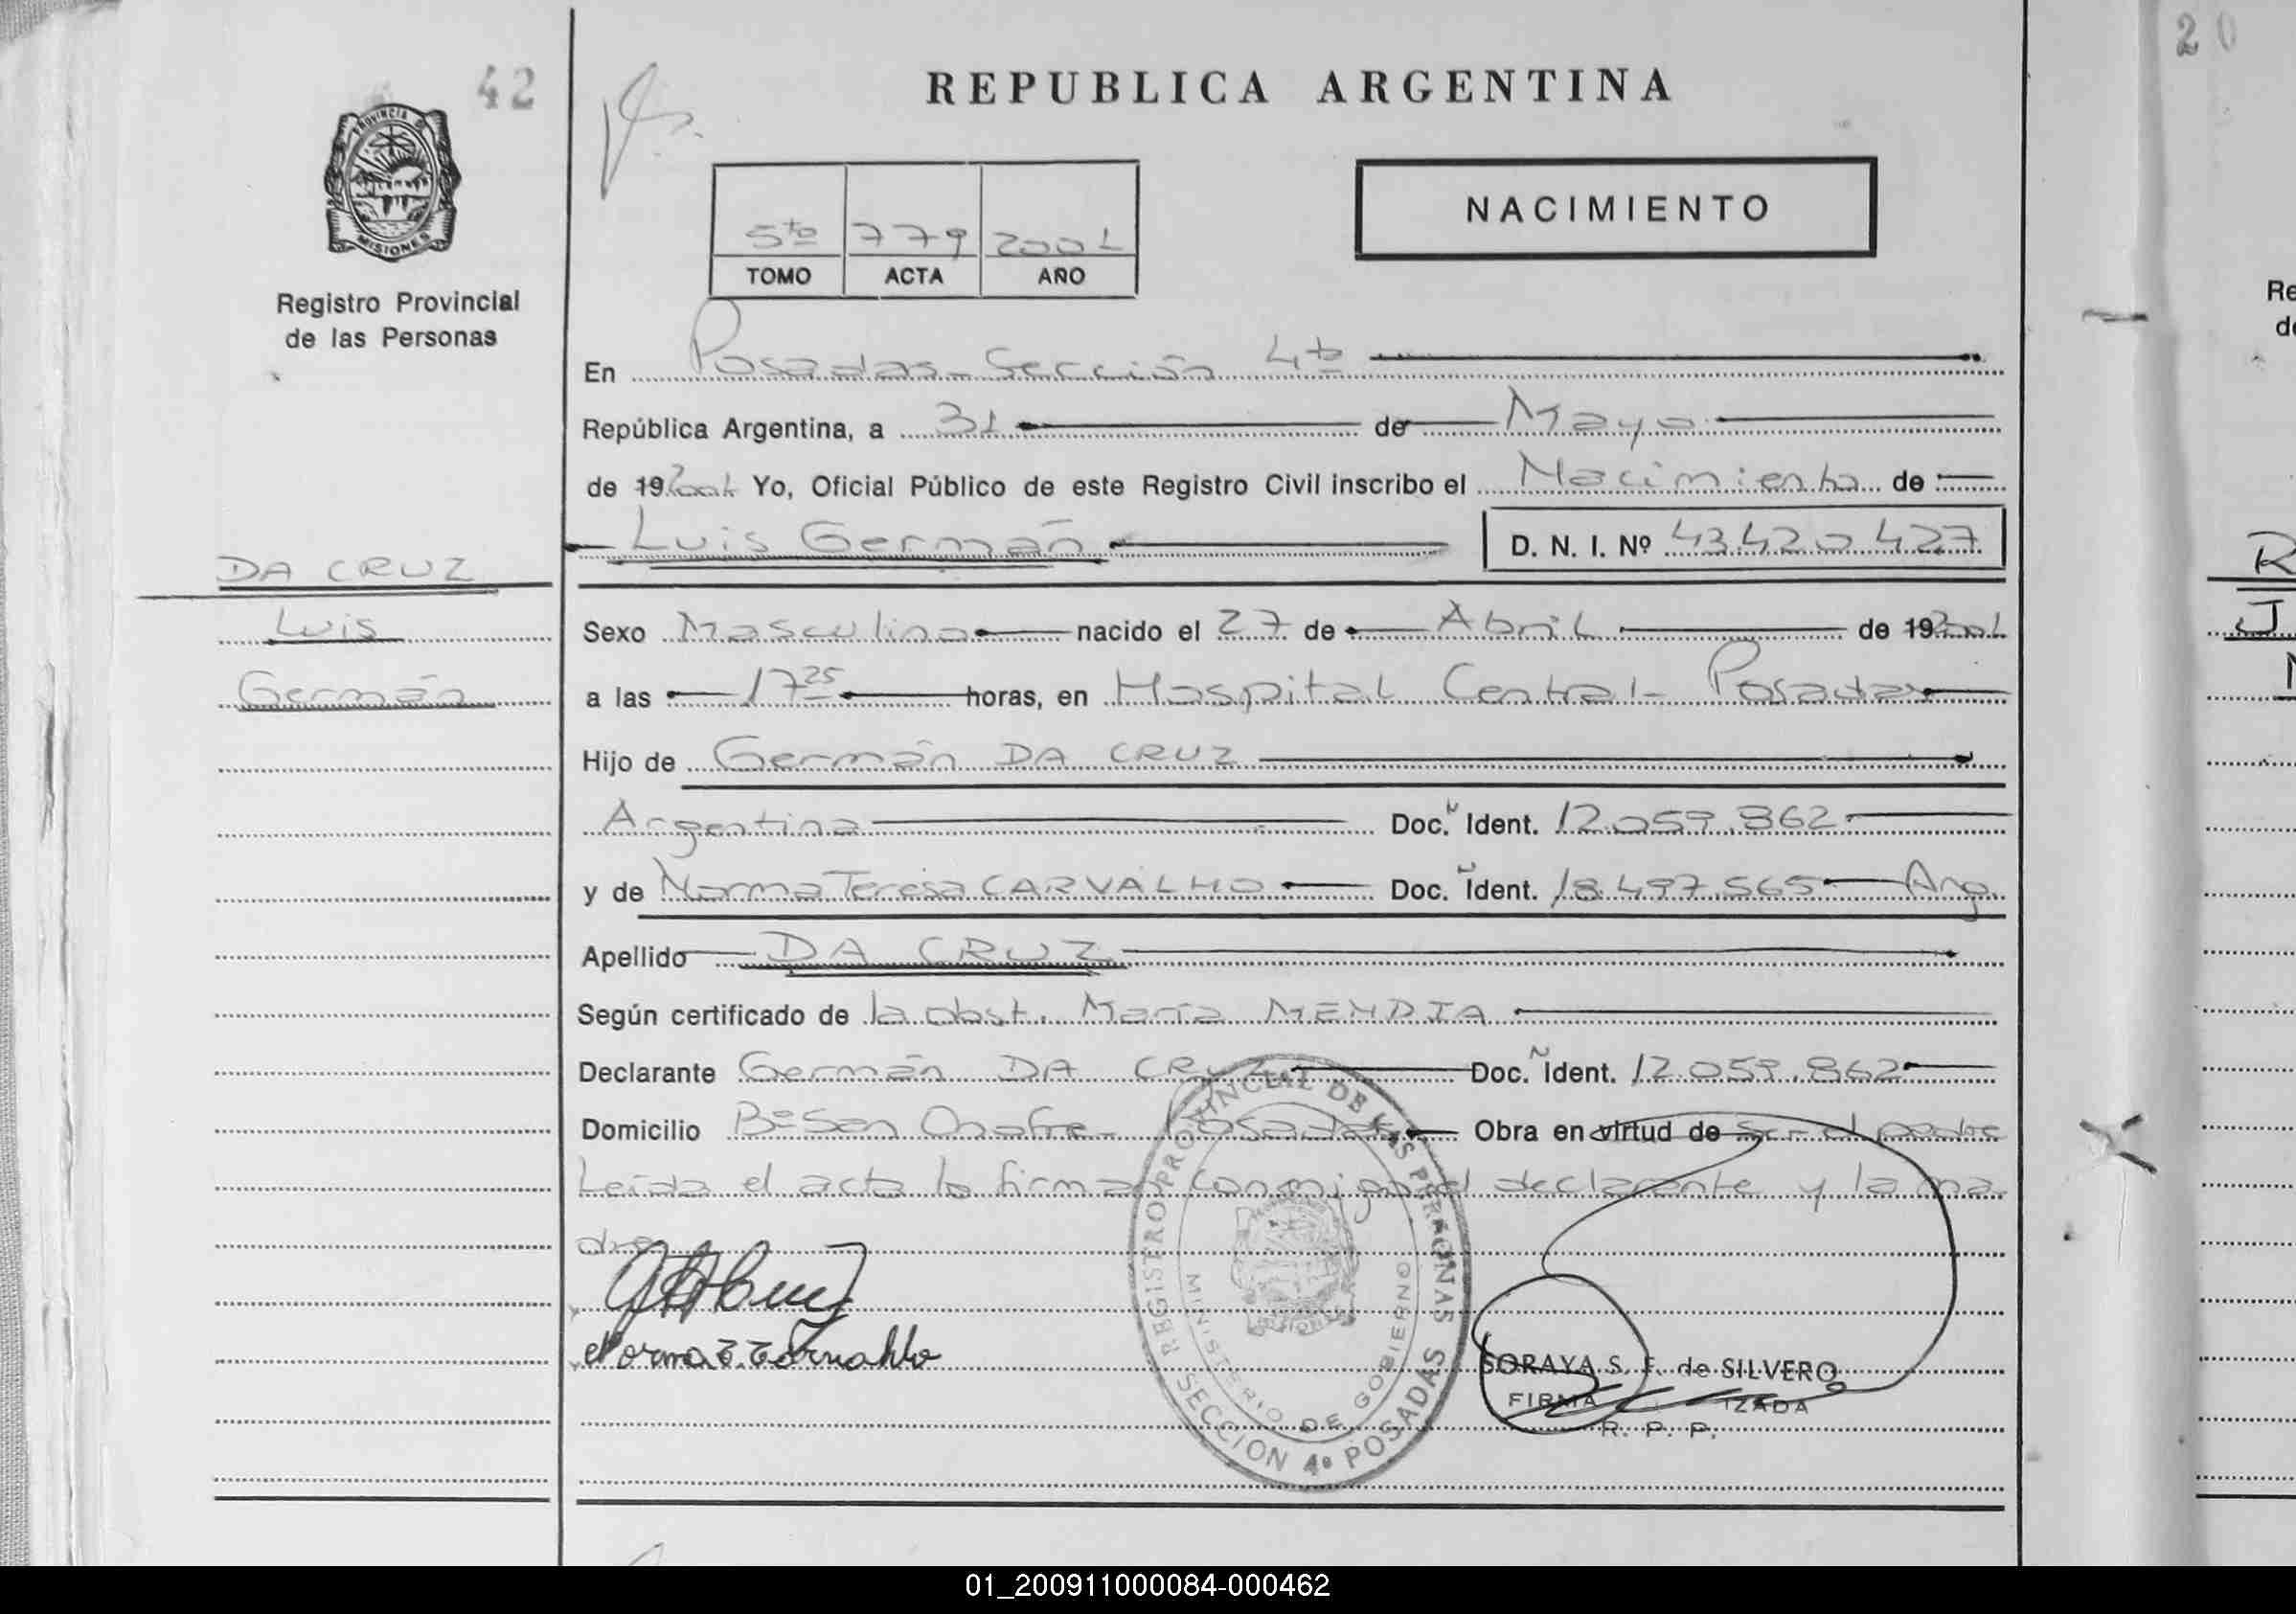 42
20
REPUBLICA ARGENTINA
PROVINCIA DE
MISIONES
Registro Provincial
de las Personas
5to 779 2001
TOMO ACTA AÑO
NACIMIENTO
En Posadas - Sección 4ta
República Argentina, a 31 de Mayo
de 19 2001 Yo, Oficial Público de este Registro Civil inscribo el Nacimiento de
Luis Germán D. N. I. Nº 43.420.427
DA CRUZ
Luis
Germán
Sexo Masculino nacido el 27 de Abril de 19 2001
a las 17 25 horas, en Hospital Central - Posadas
Hijo de Germán DA CRUZ
Argentina Doc. Ident. 12.059.862
y de Norma Teresa CARVALHO Doc. Ident. 18.497.565 Arg.
Apellido DA CRUZ
Según certificado de la obst. María MENDIA
Declarante Germán DA CRUZ Doc. Ident. 12.059.862
Domicilio Bº San Onofre - Posadas Obra en virtud de ser el padre
Leída el acta la firman conmigo el declarante y la ma
dre
REGISTRO PROVINCIAL DE LAS PERSONAS
MINISTERIO DE GOBIERNO
SECCION 4º POSADAS
SORAYA S. F. de SILVERO
R. P. P.
Re
de
R
J
01_200911000084-000462